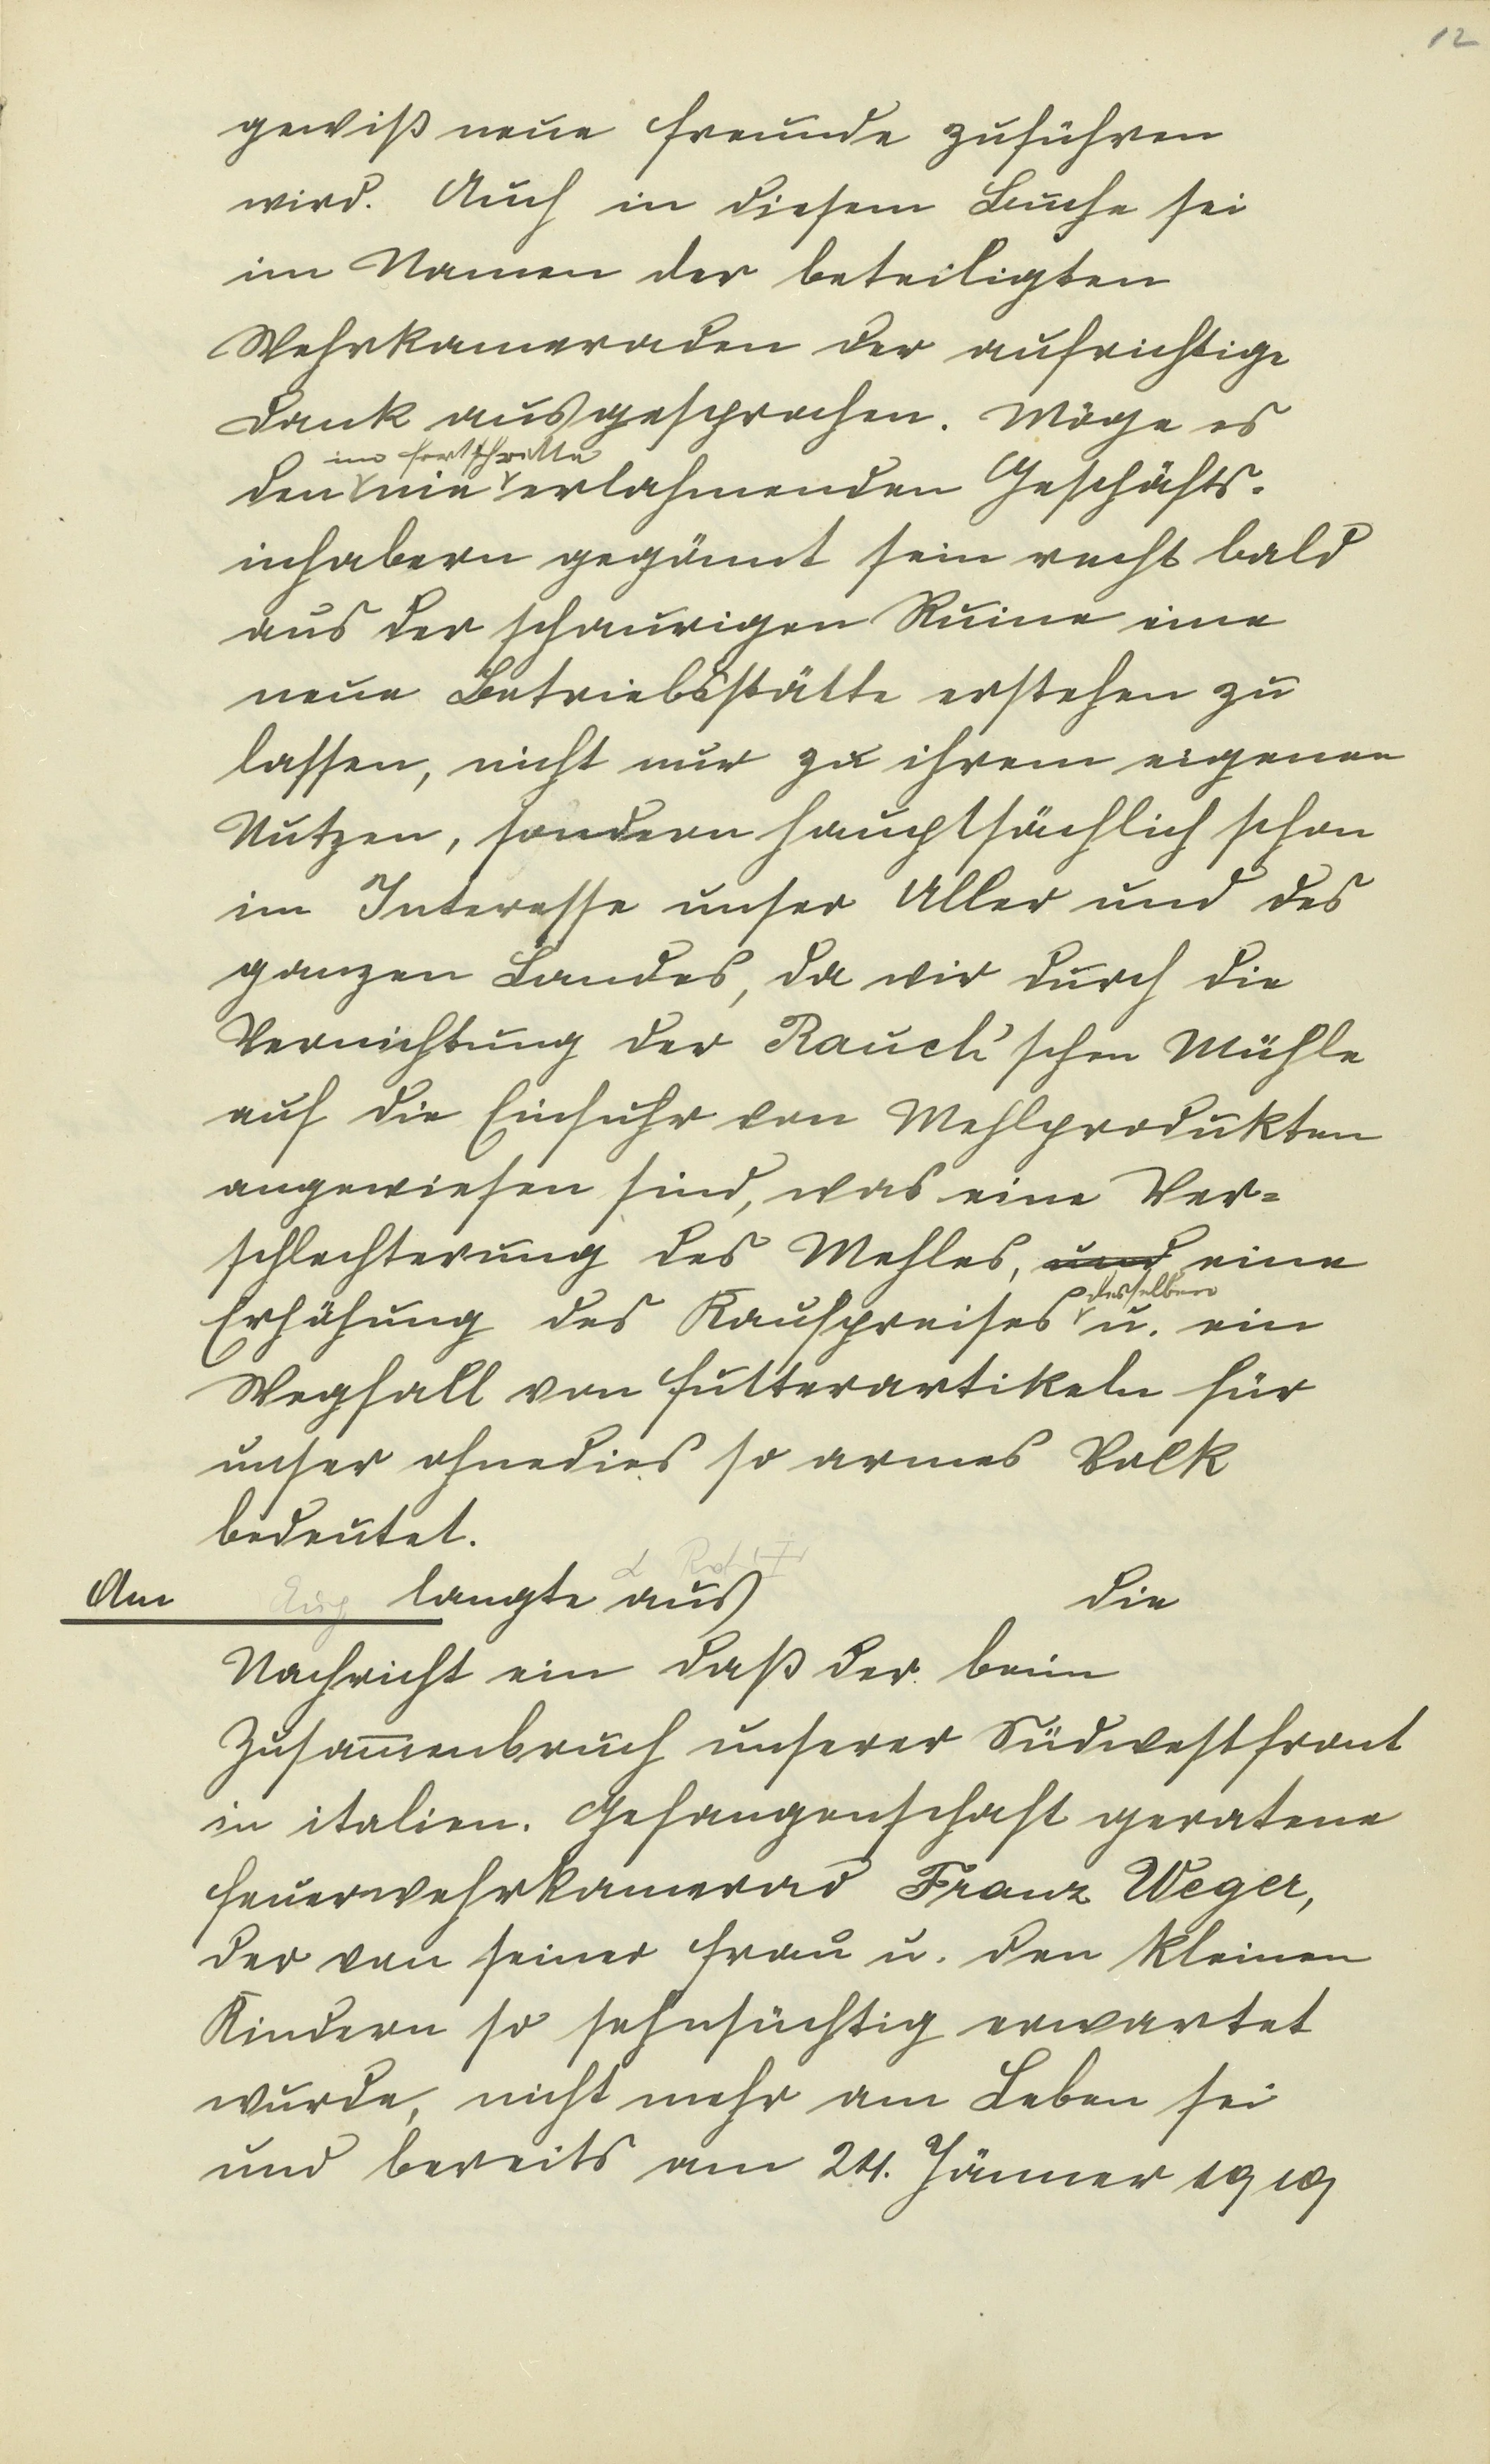 12
gewiß neue Freunde zuführen
wird. Auch in diesem Buche sei
im Namen der beteiligten
Wehrkameraden der aufrichtige
Dank ausgesprochen. Möge es
im Fortschritte
den nie erlahmenden Geschäfts-
inhabern gegönnt sein recht bald
aus der schaurigen Ruine eine
neue Betriebsstätte erstehen zu
lassen, nicht nur zu ihrem eigenen
Nutzen, sondern hauptsächlich schon
im Interesse unser Aller und des
ganzen Landes, da wir durch die
Vernichtung der Rauch'schen Mühle
auf die Einfuhr von Mehlprodukten
angewiesen sind, was eine Ver=
schlechterung des Mehles, und eine
desselben
Erhöhung des Kaufpreises u. ein
Wegfall von Futterartikeln für
unser ohnedies so armes Volk
bedeutet.
Am Aug langte aus die
Nachricht ein daß der beim
Zusam̅enbruch unserer Südwestfront
in italien. Gefangenschaft geratene
Feuerwehrkamerad Franz Weger,
der von seiner Frau u. den kleinen
Kindern so sehnsüchtig erwartet
wurde, nicht mehr am Leben sei
und bereits am 24. Jänner 1919